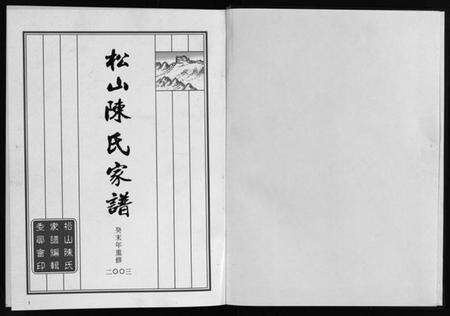 松山陳氏家譜
癸未年重修
二〇〇三
松山陳氏
家譜編輯
委員會印